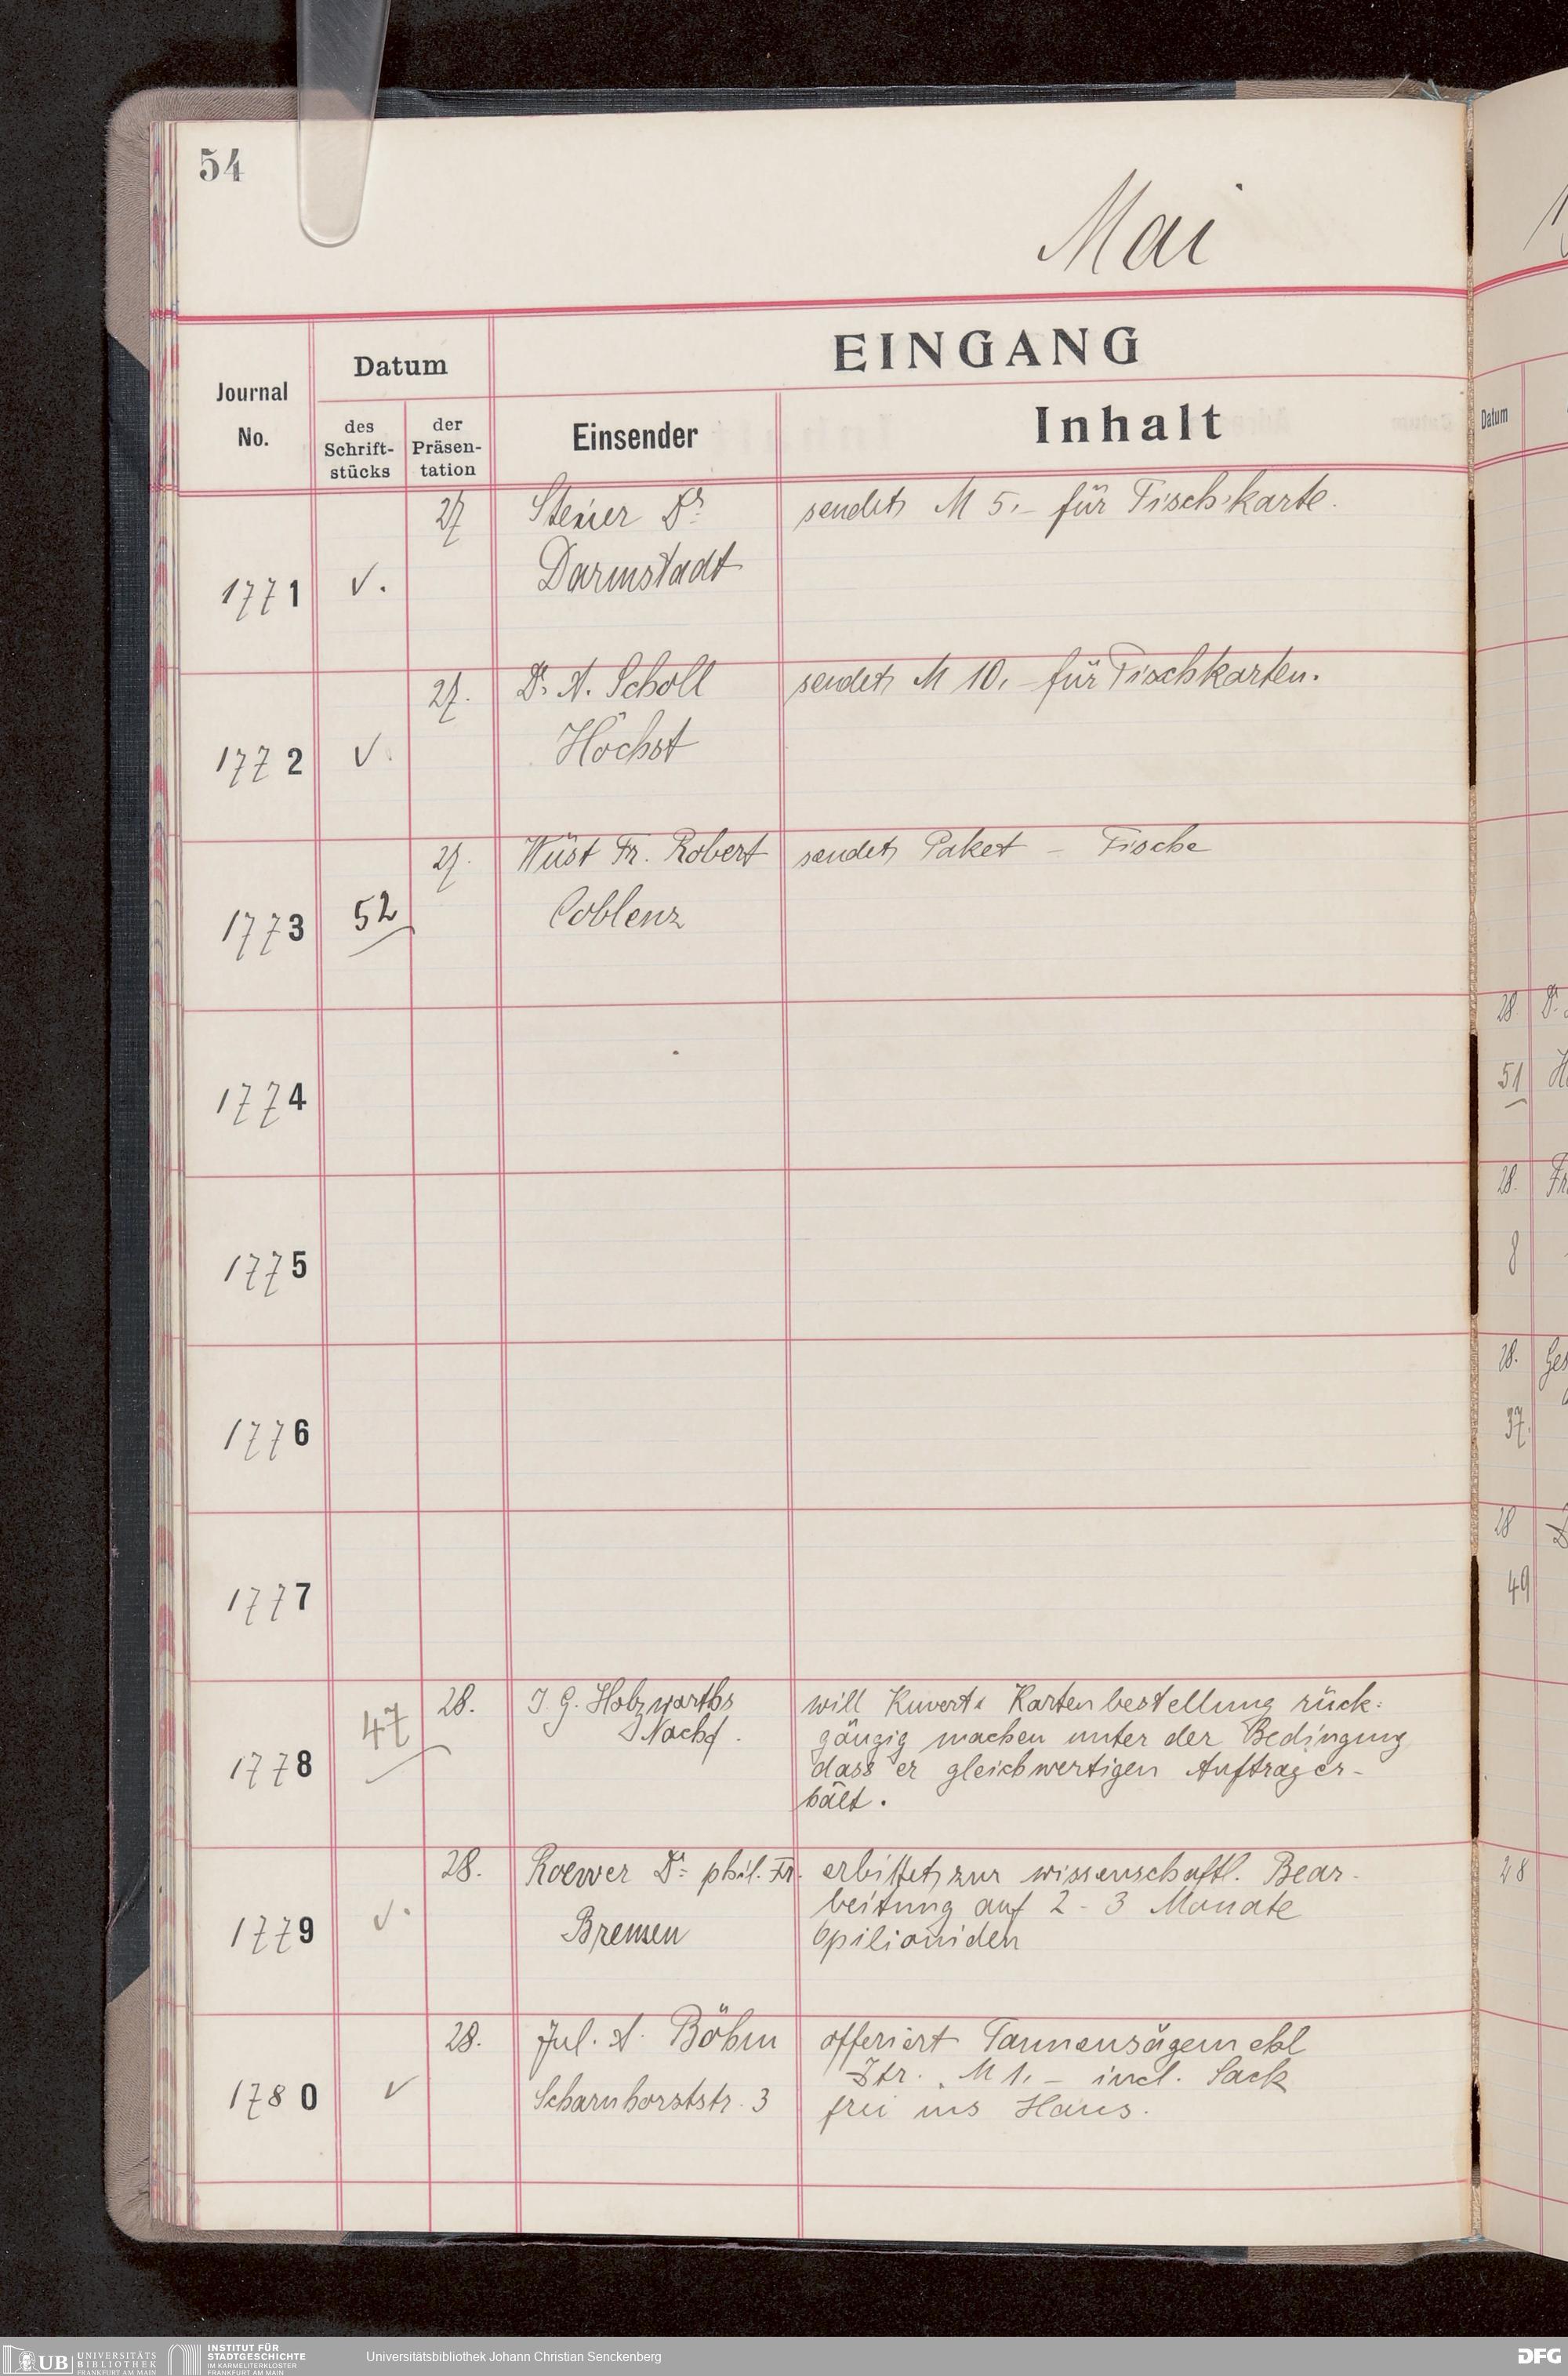 54
Mai
EINGANG
Journal No.
Datum
des Schrift-stücks
der Präsen-tation
Einsender
Inhalt
Datum
1771 v. 27 Steiner Dr. sendet M 5.- für Tischkarte.
Darmstadt
1772 v. 27. Dr. A. Scholl sendet M 10.- für Tischkarten.
Höchst
1773 52 27. Wüst Fr. Robert sendet Paket - Fische
Coblenz
1774
1775
1776
1777
1778 47 28. J. G. Holzwarths will Kuvert- Kartenbestellung rück-
Nachf. gängig machen unter der Bedingung
dass er gleichwertigen Auftrag er-
hält.
1779 v. 28. Roewer Dr. phil. Fr. erbittet zur wissenschaftl. Bear-
beitung auf 2 - 3 Monate
Bremen Opilioniden
1780 v 28. Jul. A. Böhm offeriert Tannensägemehl
Ztr. M 1.- incl. Sack
Scharnhorststr. 3 frei ins Haus.
28
51
28.
8
28.
37.
28
49
28
UB UNIVERSITÄTS BIBLIOTHEK FRANKFURT AM MAIN
INSTITUT FÜR STADTGESCHICHTE IM KARMELITERKLOSTER FRANKFURT AM MAIN
Universitätsbibliothek Johann Christian Senckenberg
DFG